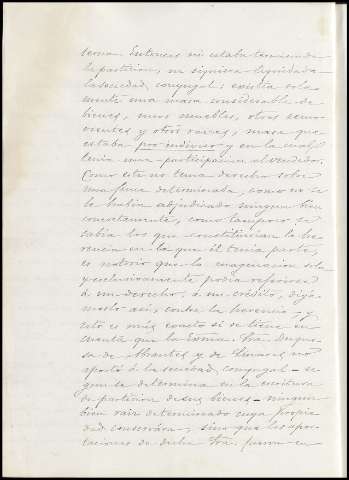 terna. Entonces ni estaba terminada
la particion, ni siquiera liquidada
la sociedad conyugal; existia sola
mente una masa considerable de
bienes, unos muebles, otros semo
vientes y otros raices, masa que
estaba por indiviso y en la cual
tenia una participacion el vendedor.
Como este no tenia derecho sobre
una finca determinada, como no se
le habia adjudicado ningun bien
concretamente, como tampoco se
sabia los que constituirian la he
rencia en la que él tenia parte,
es notorio que la enagenacion sola
y exclusivamente podia referirse
á un derecho, á un crédito, digá
moslo asi, contra la herencia, y
esto es más exacto si se tiene en
cuenta que la Exma. Sra. Duque
sa de Abrantes y de Linares no
aportó á la sociedad conyugal – se
gun se determina en la escritura
de particion de sus bienes – ningun
bien raiz determinado cuya propie
dad conservára, sino que las apor
taciones de dicha Sra. fueron en